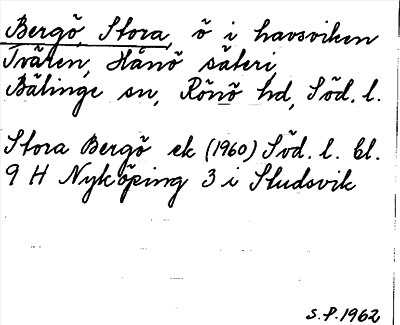 Bergö, Stora, ö i havsviken
Tvären, Hånö säteri,
Bälinge sn, Rönö hd, Söd. l.
Stora Bergö ek (1960) Söd. l. bl.
9 H Nyköping 3 i Studsvik
S.P. 1962